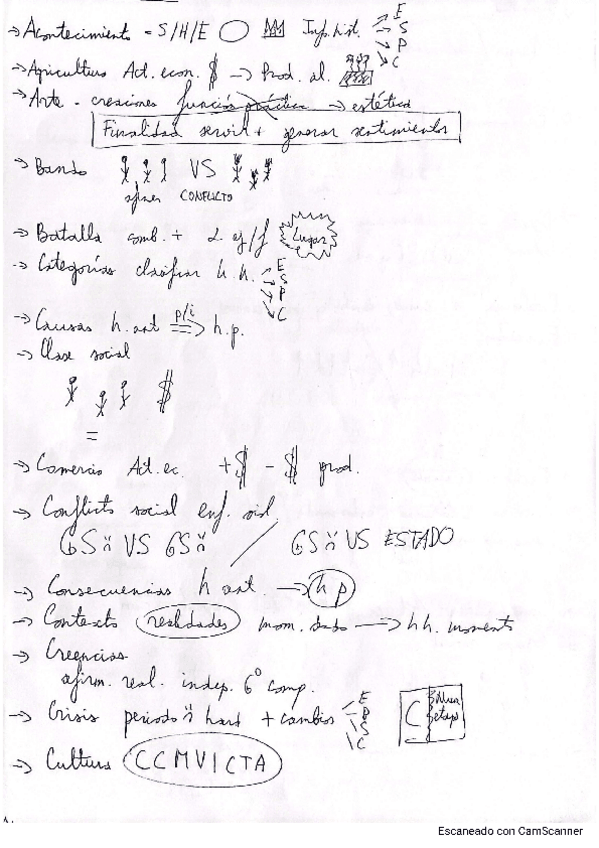 → Acontecimiento = S/H/E Inf. hist. E S P C
→ Agricultura Act. econ. $ → Prod. al.
→ Arte - creaciones función práctica → estética
Finalidad servir + generar sentimientos
→ Bando VS
CONFLICTO
→ Batalla comb. + 2 ej/f Lugar
→ Categorías clasificar h.h. E S P C
→ Causas h. ant p/i => h.p.
→ Clase social
$
=
→ Comercio Act. ec. + $ - $ prod.
→ Conflicto social enf.
GS VS GS / GS VS ESTADO
→ Consecuencias h ant. → h p
→ Contexto realidades mom. dado → hh. momento
→ Creencias
afirm. real. indep. G° comp.
→ Crisis periodo hist + cambios E P S C C nueva etapa
→ Cultura CCMVICTA
Escaneado con CamScanner